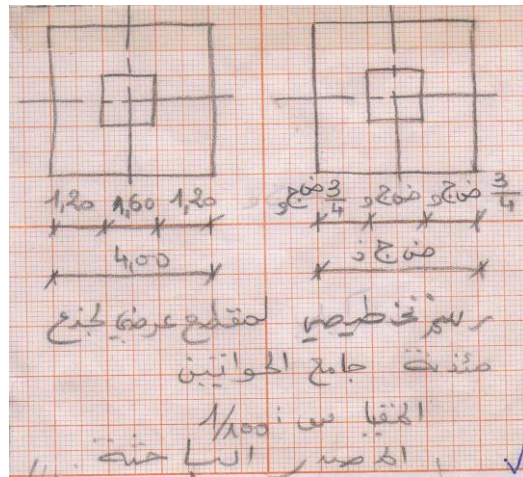 1,20 1,60 1,20
4,00
3/4 ض ج و ض ج و 3/4 ض ج و
ض ج ن
رسم تخطيطي لمقطع عرضي لجذع
مئذنة جامع الحواتين
المقياس: 1/100
المصدر الباحثة